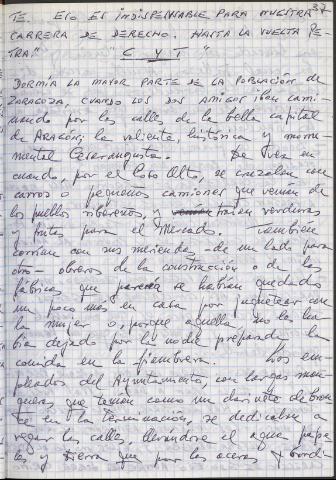 37
TE. ESO ES INDISPENSABLE PARA NUESTRA
CARRERA DE DERECHO. HASTA LA VUELTA PE-
TRA." "C y T"
DORMÍA LA MAYOR PARTE DE LA POBLACIÓN DE
ZARAGOZA, CUANDO LOS DOS AMIGOS iban cami
nando por las calles de la bella capital
de ARAGÓN; la valiente, histórica y monu
mental Cesaraugusta. De vez en
cuando, por el Coso Alto, se cruzaban con
carros o pequeños camiones que venían de
los pueblos ribereños, y traían verduras
y frutas para el Mercado. También
corrían con sus meriendas -de un lado para
otro- obreros de la construcción o de las
fábricas que parecía se habían quedado
un poco más en casa por juguetear con
la mujer o, porque aquella no le ha-
bía dejado por la noche preparada la
comida en la fiambrera. Los em-
pleados del Ayuntamiento, con largas man
gueras que tenían como un clarinete de bron
ce en la terminación, se dedicaban a
regar las calles, llevándose el agua pape
les y tierra que por las aceras y bordi-